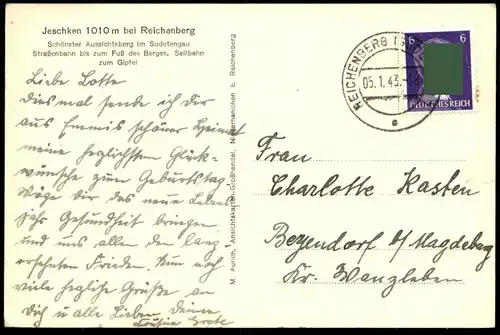 Jeschken 1010 m bei Reichenberg
Schönster Aussichtsberg im Sudetengau
Straßenbahn bis zum Fuß des Berges. Seilbahn
zum Gipfel
Liebe Lotte
Dies mal sende ich dir
aus schöner Heimat
meine herzlichsten Glück-
wünsche zum Geburtstag.
Möge dir das neue Lebens
jahr Gesundheit bringen
und uns allen den lang
ersehnten Frieden. Nun noch
viele herzliche Grüße an
Dich u alle Lieben Deine
Grete
M. Aurich, Ansichtskarten-Großhandel, b. Reichenberg
REICHENBERG
05.1.43.
c
6 6
DEUTSCHES REICH
Frau
Charlotte Kasten
Beyendorf b/Magdeburg
Kr. Wanzleben